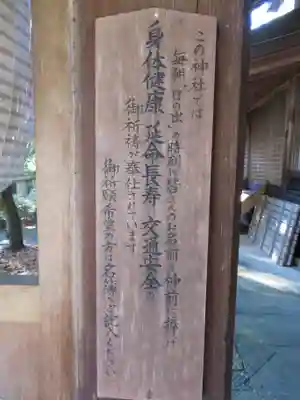 この神社では
毎朝 日の出の時刻に皆さんのお名前を神前に捧げ
身体健康 延命長寿 交通安全の
御祈祷が奉仕されています
御祈願希望の方は名簿にご記入ください